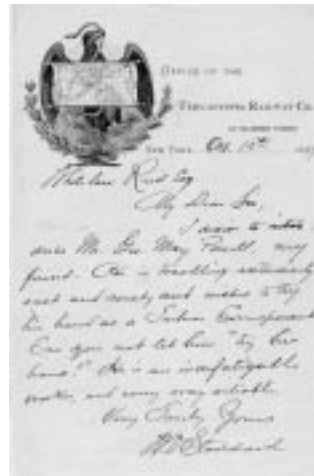 OFFICE OF THE
RAILWAY CO.
NEW YORK, Oct. 15th
Whitelaw Reid Esq
My Dear Sir,
I desire to intro-
duce Mr. Geo May Powell, my
friend. He is travelling extensively
east and and wishes to try
his hand as a Tribune Correspondent
Can you not let him "try his
hand?" He is an indefatigable
worker, and very very reliable.
Very Truly Yours